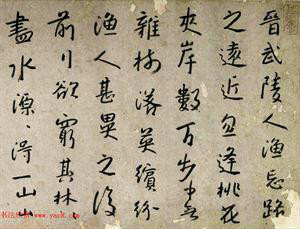 晉武陵人漁忘路
之遠近忽逢桃花
夾岸數百步中無
雜樹落英繽紛
漁人甚異之復
前行欲窮其林
盡水源、得一山
书法欣赏 www.yac8.com